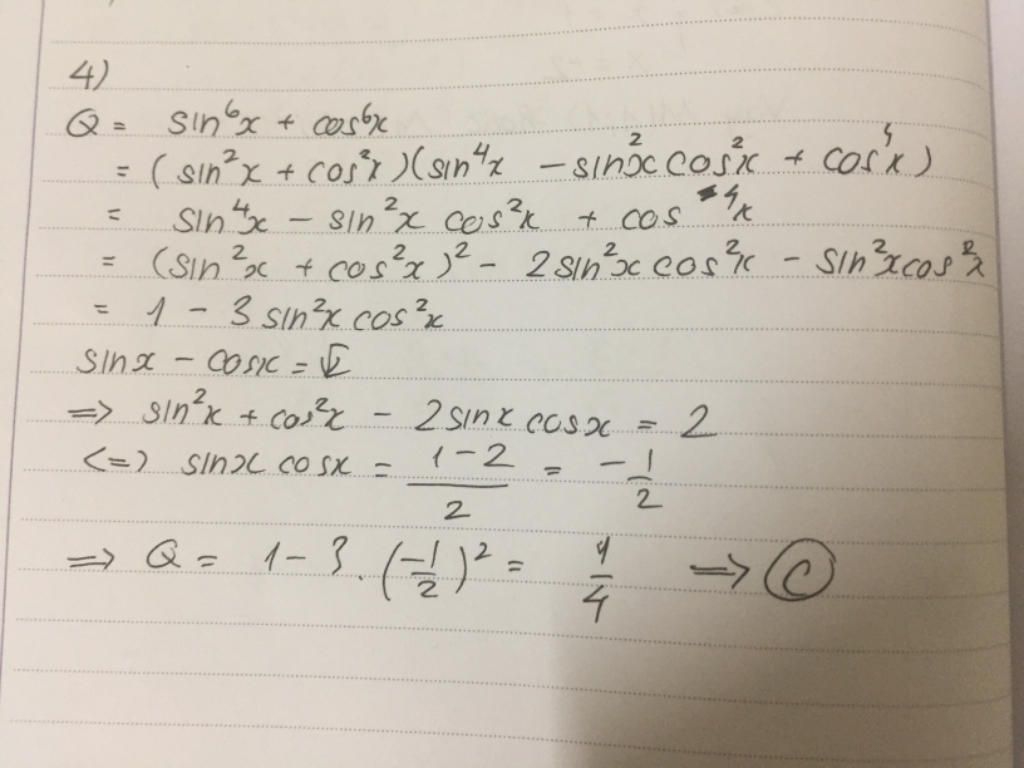 4)
Q = sin⁶x + cos⁶x
= (sin²x + cos²x)(sin⁴x - sin²x cos²x + cos⁴x)
= sin⁴x - sin²x cos²x + cos⁴x
= (sin²x + cos²x)² - 2sin²x cos²x - sin²x cos²x
= 1 - 3 sin²x cos²x
sinx - cosx = √2
=> sin²x + cos²x - 2sinx cosx = 2
<=> sinx cosx = (1-2)/2 = -1/2
=> Q = 1 - 3.(-1/2)² = 1/4 => C